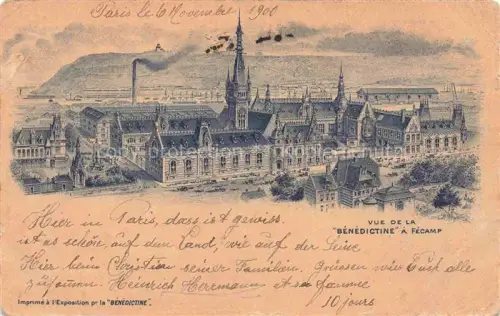 Paris le 6 Novembre 1900
VUE DE LA
"BÉNÉDICTINE" A FÉCAMP
Hier in Paris, dass ist gewiss
ist es schön, auf den Land, wie auf der Seine
Hier beim Christian seiner Familien. grüssen wir Euch alle
zusammen. Heinrich Herrmann et sa femme
10 jours
Imprimé à l'Exposition pr la "BÉNÉDICTINE".